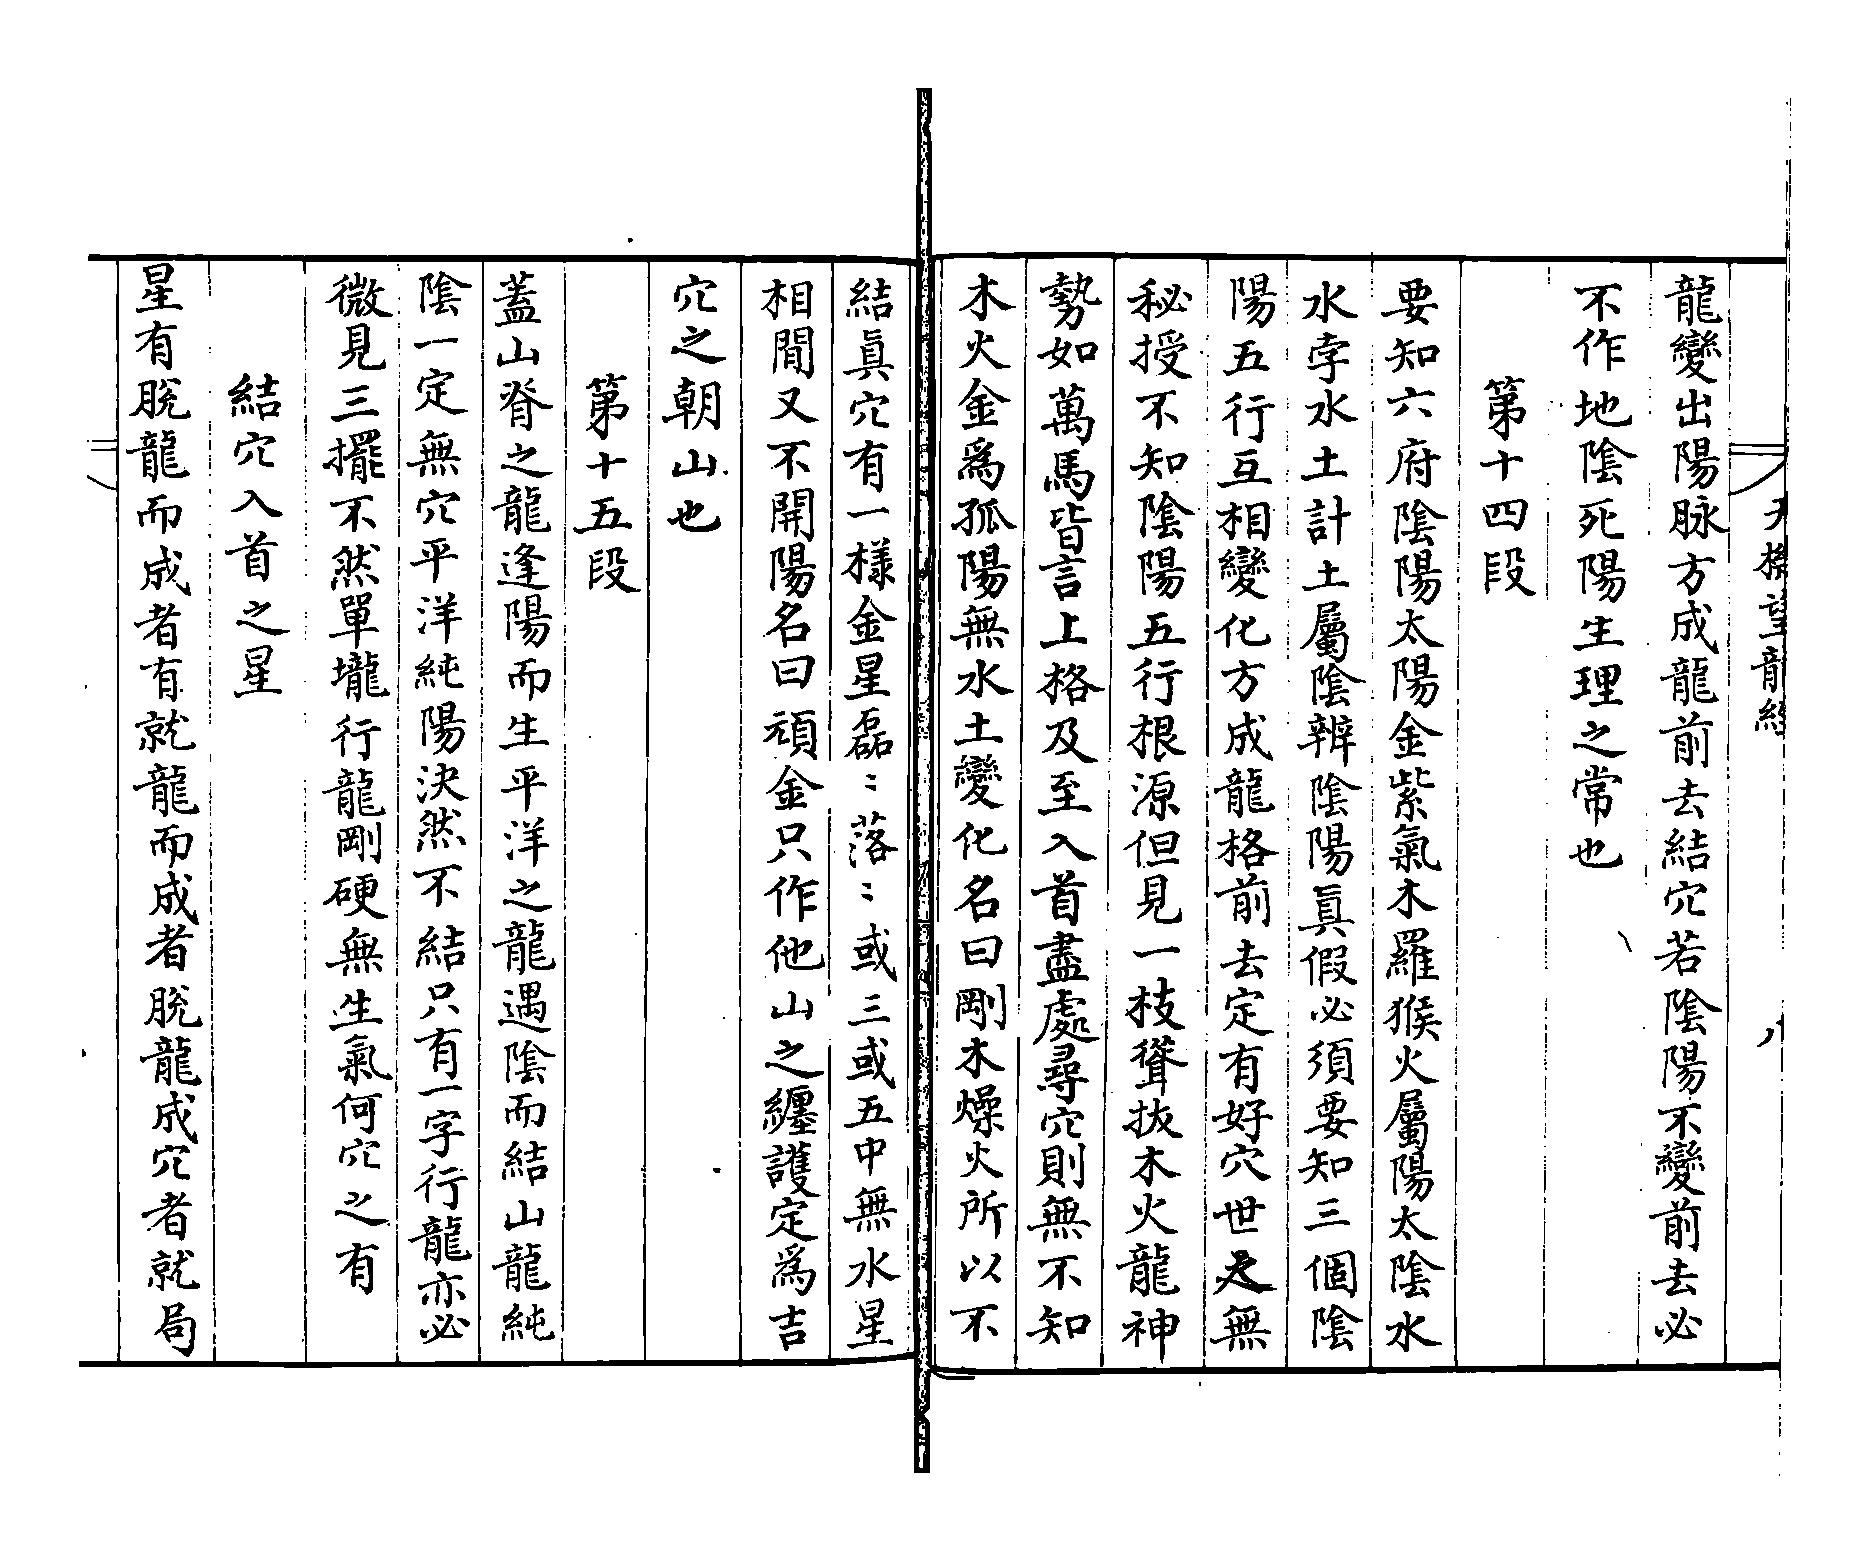 天機望龍經 八
龍變出陽脉方成龍前去結穴若陰陽不變前去必
不作地陰死陽生理之常也
第十四段
要知六府陰陽太陽金紫氣木羅猴火屬陽太陰水
水孛水土計土屬陰辨陰陽眞假必須要知三個陰
陽五行互相變化方成龍格前去定有好穴世之無
秘授不知陰陽五行根源但見一枝聳拔木火龍神
勢如萬馬皆言上格及至入首盡處尋穴則無不知
木火金爲孤陽無水土變化名曰剛木燥火所以不
結眞穴有一樣金星磊〻落〻或三或五中無水星
相間又不開陽名曰頑金只作他山之纏護定爲吉
穴之朝山也
第十五段
蓋山脊之龍逢陽而生平洋之龍遇陰而結山龍純
陰一定無穴平洋純陽決然不結只有一字行龍亦必
微見三擺不然單壠行龍剛硬無生氣何穴之有
結穴入首之星
星有脫龍而成者有就龍而成者脫龍成穴者就局